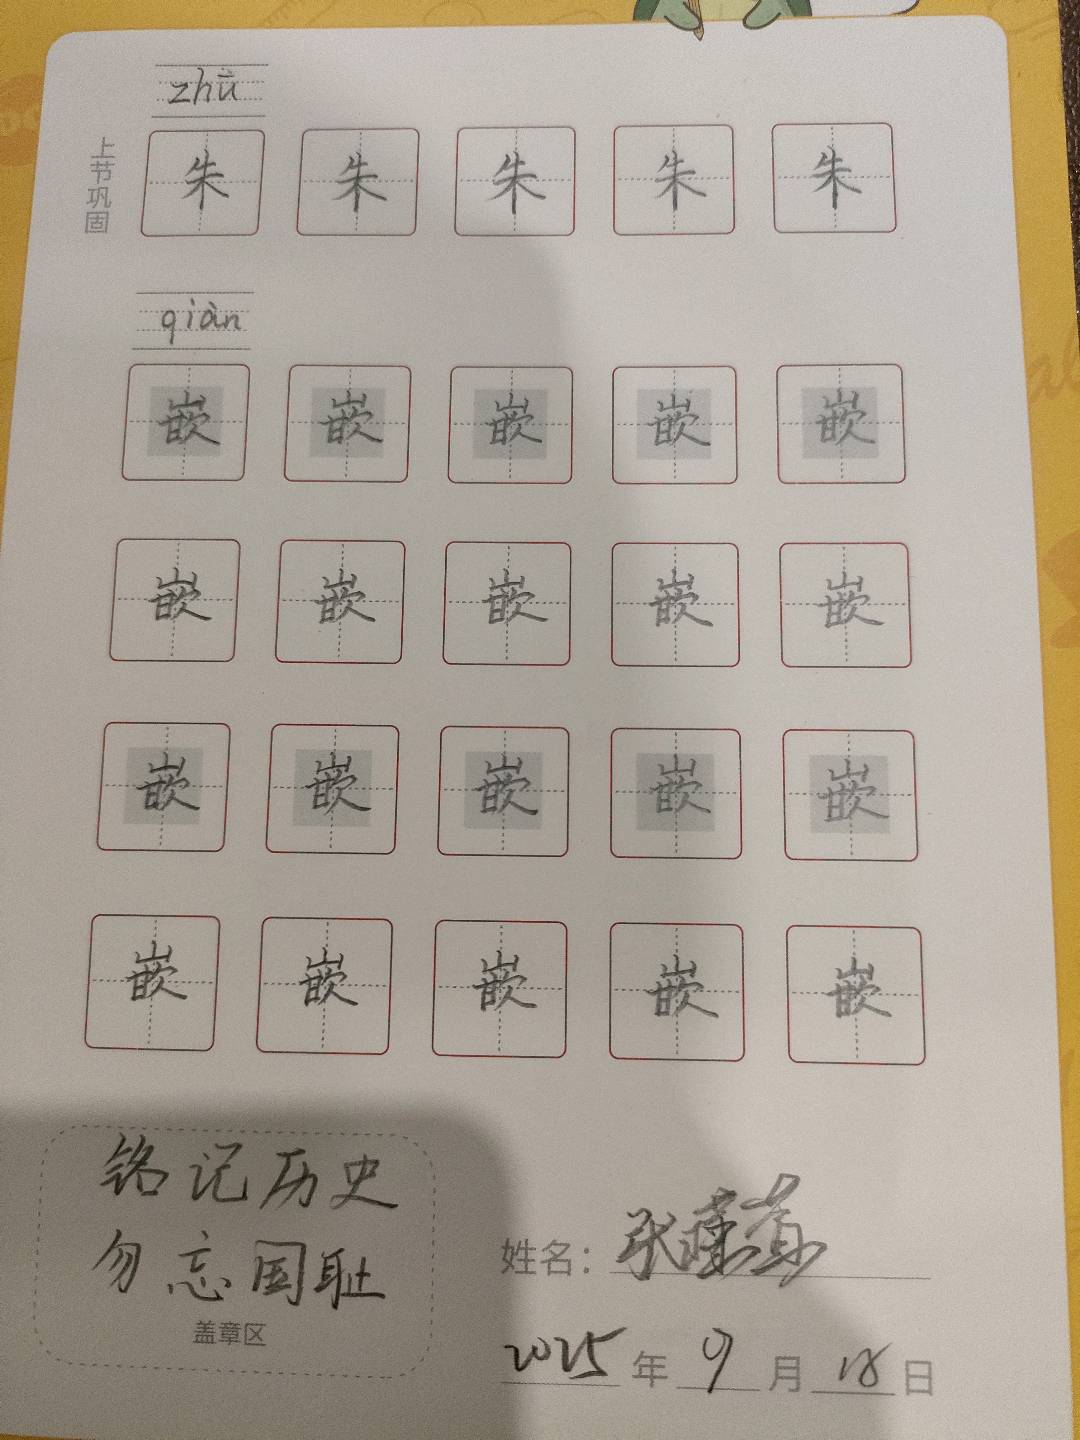 zhū
上节巩固
朱 朱 朱 朱 朱
qiàn
嵌 嵌 嵌 嵌 嵌
嵌 嵌 嵌 嵌 嵌
嵌 嵌 嵌 嵌 嵌
嵌 嵌 嵌 嵌 嵌
铭记历史
勿忘国耻
盖章区
姓名：张
2025年9月18日